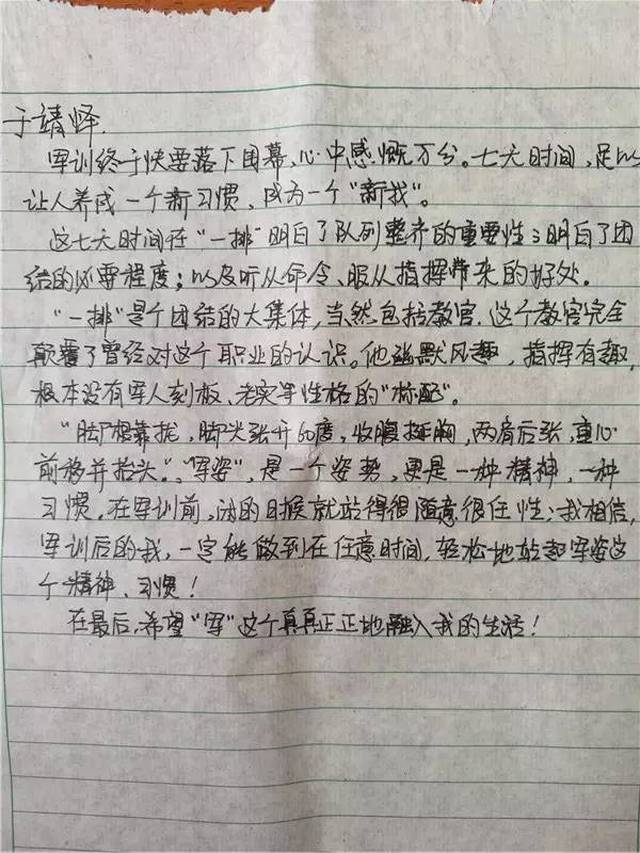 于靖怿.
军训终于快要落下围幕,心中感慨万分。七天时间,足以
让人养成一个新习惯、成为一个“新我”。
这七天时间在“一排”明白了队列整齐的重要性;明白了团
结的必要程度;以及听从命令、服从指挥带来的好处。
“一排”是个团结的大集体,当然包括教官.这个教官完全
颠覆了曾经对这个职业的认识。他幽默风趣,指挥有趣,
根本没有军人刻板、老实等性格的“标配”。
“脚跟靠拢,脚尖张开60度,收腹挺胸,两肩后张,重心
前移并抬头”、“军姿”,是一个姿势,更是一种精神,一种
习惯,在军训前,的时候就站得很随意很任性;我相信,
军训后的我,一定能做到在任意时间,轻松地站起军姿这
个精神、习惯!
在最后,希望“军”这个真真正正地融入我的生活!